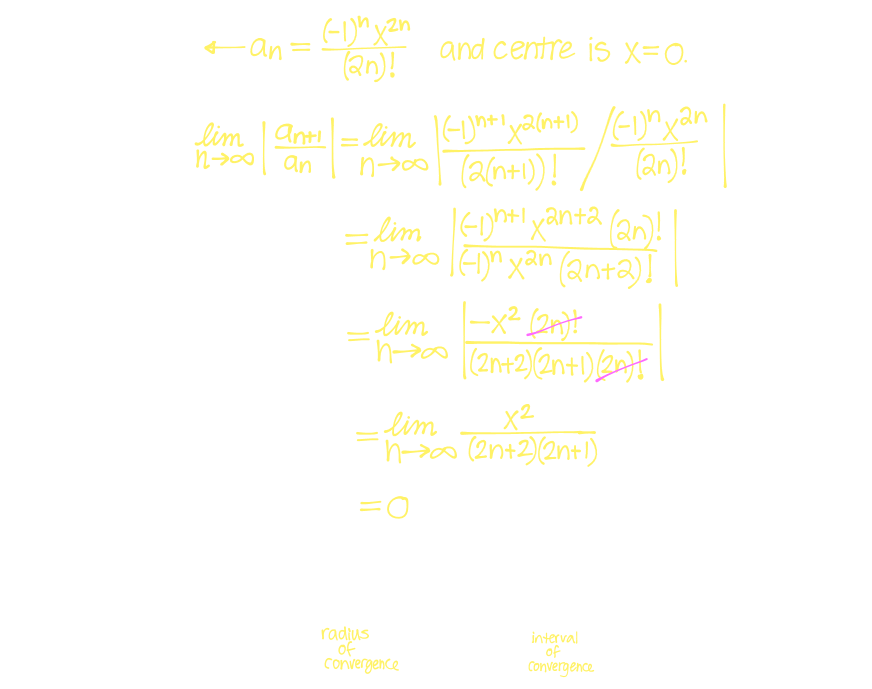 ← aₙ = (-1)ⁿ x²ⁿ / (2n)! and centre is x = 0.
lim n→∞ | aₙ₊₁ / aₙ | = lim n→∞ | (-1)ⁿ⁺¹ x²⁽ⁿ⁺¹⁾ / (2(n+1))! / (-1)ⁿ x²ⁿ / (2n)! |
= lim n→∞ | (-1)ⁿ⁺¹ x²ⁿ⁺² (2n)! / (-1)ⁿ x²ⁿ (2n+2)! |
= lim n→∞ | -x² (2n)! / (2n+2)(2n+1)(2n)! |
= lim n→∞ x² / (2n+2)(2n+1)
= 0
radius
of
convergence
interval
of
convergence